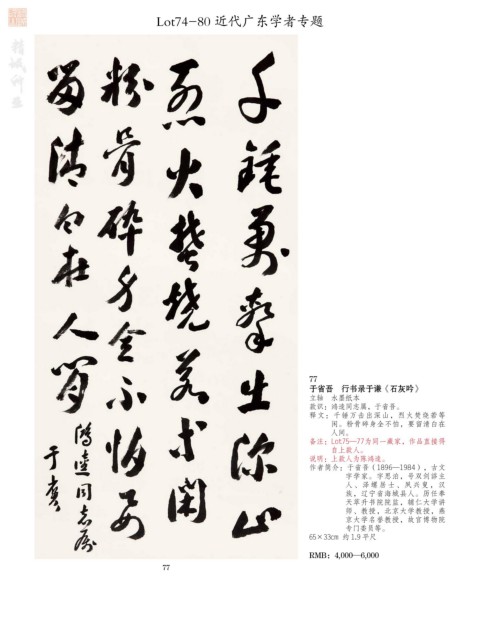 Lot74-80 近代广东学者专题
千錘萬擊出深山
烈火焚燒若等閑
粉骨碎身全不怕要
留清白在人間
鴻逵同志属
于省吾
77
77
于省吾 行书录于谦《石灰吟》
立轴 水墨纸本
款识：鸿逵同志属，于省吾。
释文：千锤万击出深山，烈火焚烧若等
闲。粉骨碎身全不怕，要留清白在
人间。
备注：Lot75—77为同一藏家，作品直接得
自上款人。
说明：上款人为陈鸿逵。
作者简介：于省吾（1896—1984），古文
字学家。字思泊，号双剑誃主
人、泽螺居士、夙兴叟，汉
族，辽宁省海城县人。历任奉
天萃升书院院监，辅仁大学讲
师、教授，北京大学教授，燕
京大学名誉教授，故宫博物院
专门委员等。
65×33cm 约1.9平尺
RMB: 4,000—6,000